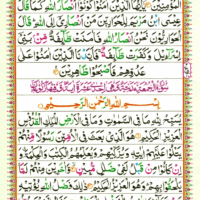 الْمُؤْمِنِيْنَ يٰۤاَيُّهَا الَّذِيْنَ اٰمَنُوْا كُوْنُوْۤا اَنْصَارَ اللّٰهِ كَمَا قَالَ
عِيْسَى ابْنُ مَرْيَمَ لِلْحَوَارِيّٖنَ مَنْ اَنْصَارِيْۤ اِلَى اللّٰهِ قَالَ
الْحَوَارِيُّوْنَ نَحْنُ اَنْصَارُ اللّٰهِ فَاٰمَنَتْ طَّآىِٕفَةٌ مِّنْۢ بَنِيْۤ
اِسْرَآءِيْلَ وَكَفَرَتْ طَّآىِٕفَةٌ فَاَيَّدْنَا الَّذِيْنَ اٰمَنُوْا عَلٰى
عَدُوِّهِمْ فَاَصْبَحُوْا ظٰهِرِيْنَ
بِسْمِ اللّٰهِ الرَّحْمٰنِ الرَّحِيْمِ
يُسَبِّحُ لِلّٰهِ مَا فِى السَّمٰوٰتِ وَمَا فِى الْاَرْضِ الْمَلِكِ الْقُدُّوْسِ
الْعَزِيْزِ الْحَكِيْمِ هُوَ الَّذِيْ بَعَثَ فِى الْاُمِّيّٖنَ رَسُوْلًا مِّنْهُمْ
يَتْلُوْا عَلَيْهِمْ اٰيٰتِهٖ وَيُزَكِّيْهِمْ وَيُعَلِّمُهُمُ الْكِتٰبَ وَالْحِكْمَةَ وَ
اِنْ كَانُوْا مِنْ قَبْلُ لَفِيْ ضَلٰلٍ مُّبِيْنٍ وَّاٰخَرِيْنَ مِنْهُمْ لَمَّا
يَلْحَقُوْا بِهِمْ وَهُوَ الْعَزِيْزُ الْحَكِيْمُ ذٰلِكَ فَضْلُ اللّٰهِ يُؤْتِيْهِ